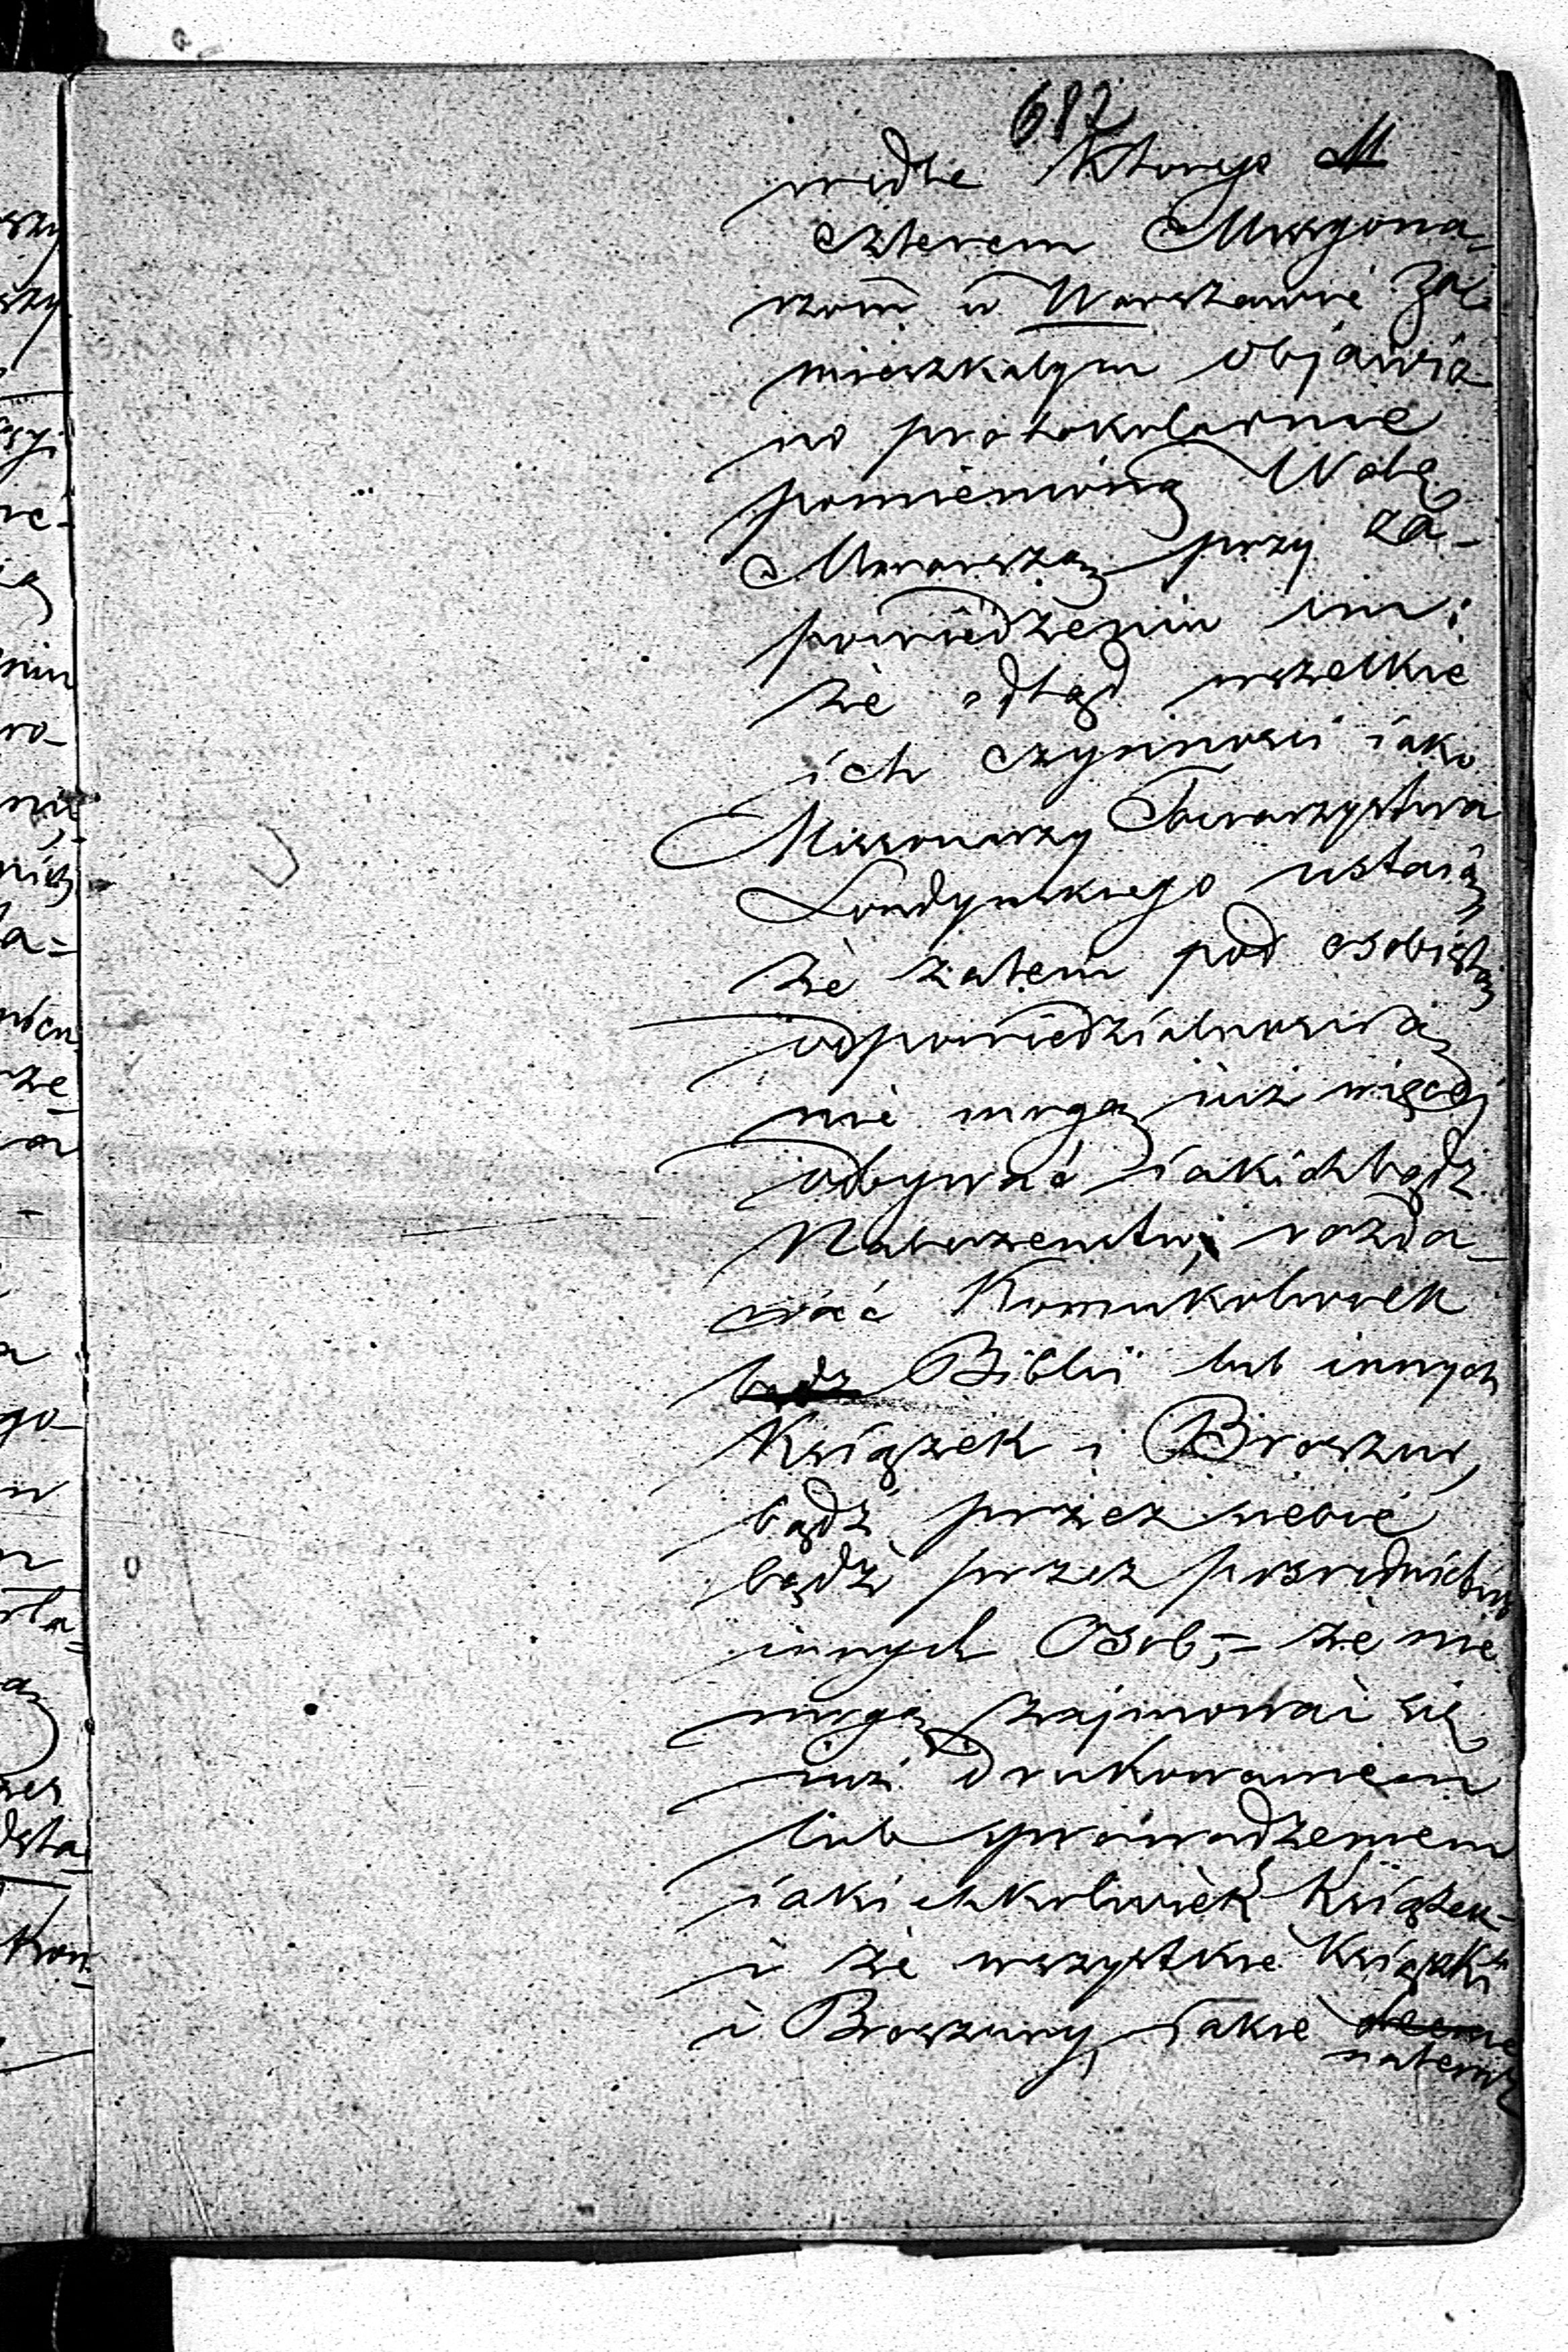 687
wedle którego M
czterem Missyona-
rzom w Warszawie za-
mieszkałym objawio-
no protokolarnie
pomienioną Wolą
Monarszą przy za-
powiedzeniu im:
że odtąd wszelkie
ich czynności iako
Missionarzy Towarzystwa
Londyńskiego ustaią,
że zatem pod osobistą
odpowiedzialnością
nie mogą iuż więcéj
odbywać iakichbądź
Nabożeństw, rozda-
wać Komukolwiek
bądz Biblii lub innych
Książek i Broszur,
bądź przez siebie
bądź przez pośrednictwo
innych Osób,- że nie
mogą zajmować się
iuż drukowaniem
lub sprowadzeniem
iakichkolwiek Książek-
i że wszystkie Książki
i Broszury, iakie